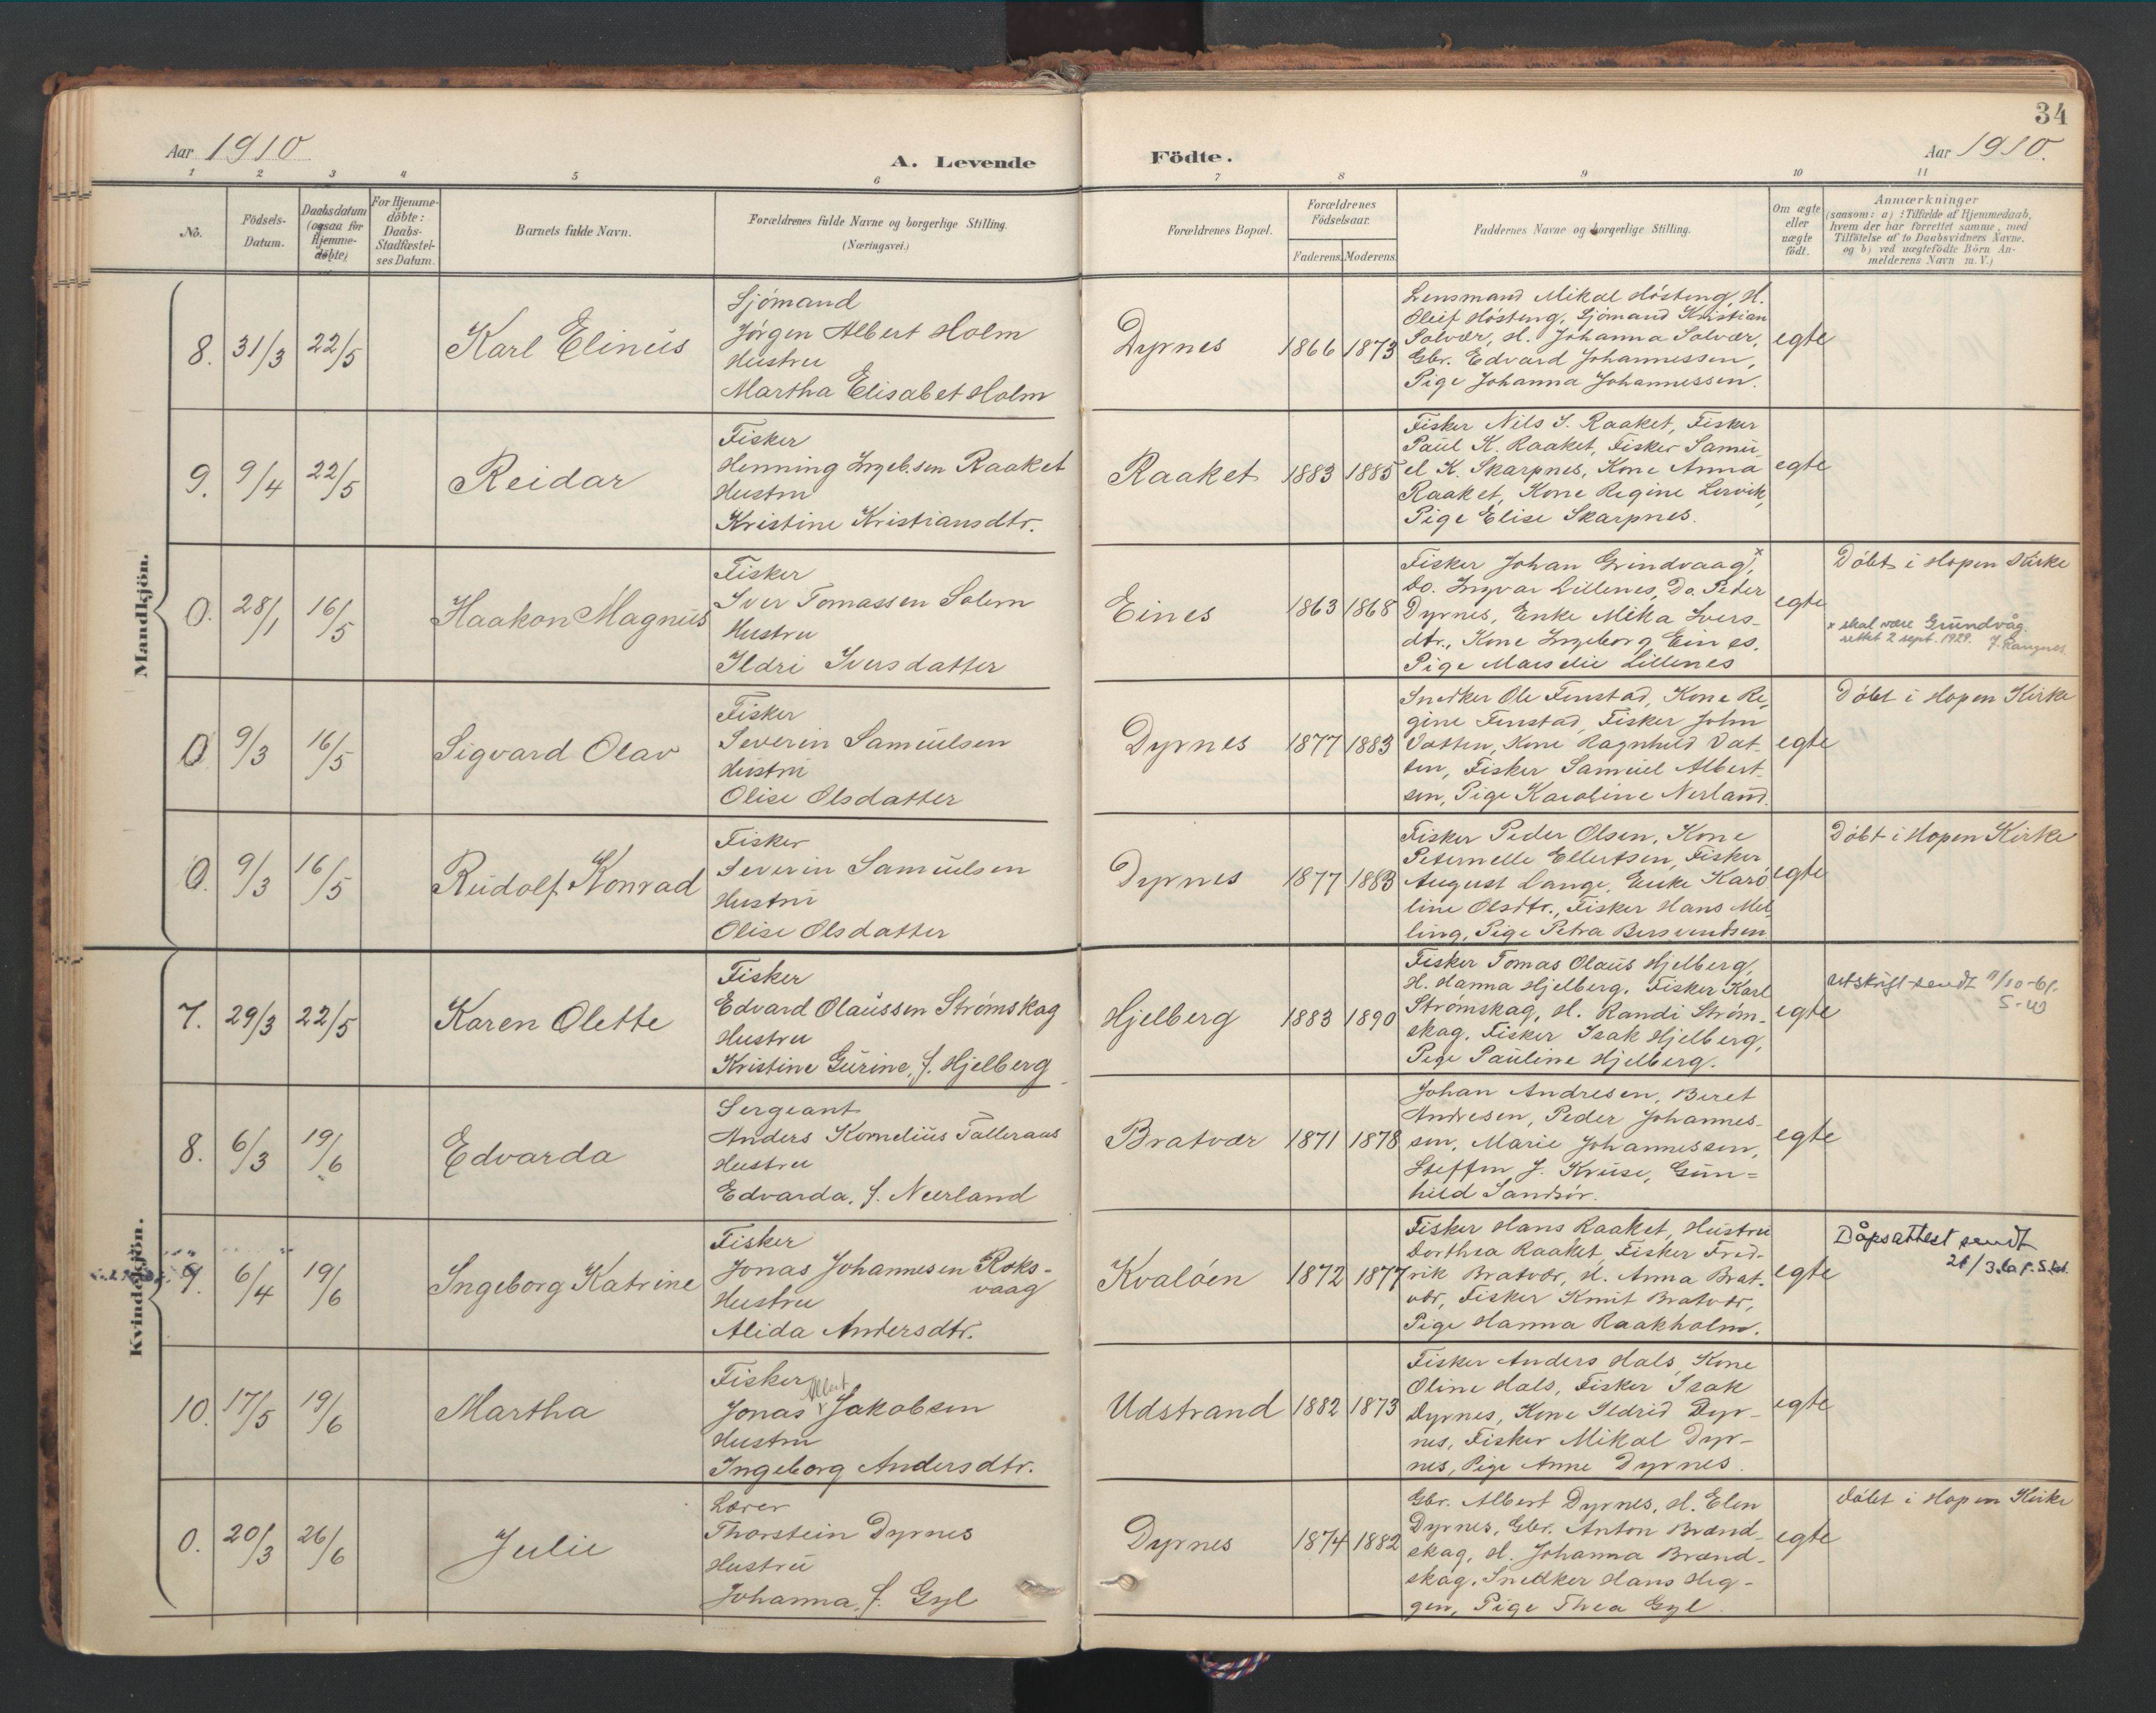 34
Aar 1910
A. Levende
Födte.
Aar 1910.
1 2 3 4 5 6 7 8 9 10 11
No.
Födsels-
Datum.
Daabsdatum
(ogsaa for
Hjemme-
döbte)
For Hjemme-
döbte:
Daabs-
Stadfæstel-
ses Datum.
Barnets fulde Navn.
Forældrenes fulde Navne og borgerlige Stilling.
(Næringsvei.)
Forældrenes Bopæl.
Forældrenes
Födselsaar.
Faderens.
Moderens.
Faddernes Navne og borgerlige Stilling.
Om ægte
eller
uægte
födt.
Anmærkninger
(saasom: a) i Tilfælde af Hjemmedaab,
hvem der har forrettet samme, med
Tilföielse af to Daabsvidners Navne,
og b) ved uægtefödte Börn An-
melderens Navn m. V.)
Mandkjön.
8. 31/3 22/5
Karl Elinus
Sjómand
Jórgen Albert Holm
Hustru
Martha Elisabet Holm
Dyrnes
1866 1873
Lensmand Mikal Hósteng, H.
Oleif Hósteng, Sjómand Kristian
Solvær, H. Johanna Solvær,
Gbr. Edvard Johannessen,
Pige Johanna Johannessen.
egte
9. 9/4 22/5
Reidar
Fisker
Henning Ingeb.sen Raaket
Hustru
Kristine Kristiansdtr.
Raaket
1883 1885
Fisker Nils I. Raaket, Fisker
Paul K. Raaket, Fisker Samu-
el K. Skarpnes, Kone Anna
Raaket, Kone Regine Lervik,
Pige Elise Skarpnes.
egte
0. 28/1 16/5
Haakon Magnus
Fisker
Iver Tomassen Solem
Hustru
Ildri Iversdatter
Eines
1863 1868
Fisker Johan Grindvaag x,
Do. Ingvar Lillenes, Do. Peder
Dyrnes, Enke Mika Ivers-
dtr., Kone Ingeborg Eines,
Pige Maiselie Lillenes
egte
Dóbt i Hopen Kirke
x skal være Grundvåg.
rettet 2 sept. 1929.
0 9/3 16/5
Sigvard Olav
Fisker
Severin Samuelsen
Hustru
Olise Olsdatter
Dyrnes
1877 1883
Snedker Ole Finstad, Kone Re-
gine Finstad, Fisker John
Vatten, Kone Ragnhild Vat-
ten, Fisker Samuel Albert-
sen, Pige Karoline Nerland.
egte
Dóbt i Hopen Kirke
0. 9/3 16/5
Rudolf Konrad
Fisker
Severin Samuelsen
Hustru
Olise Olsdatter
Dyrnes
1877 1883
Fisker Peder Olsen, Kone
Peternelle Ellertsen, Fisker
August Lange, Enke Karo-
line Olsdtr., Fisker Hans Mel-
ling, Pige Petra Bersvendsen
egte
Dóbt i Hopen Kirke
Kvindekjön.
7. 29/3 22/5
Karen Olette
Fisker
Edvard Olaussen Strómskag
Hustru
Kristine Gurine, f. Hjelberg
Hjelberg
1883 1890
Fisker Tomas Olaus Hjelberg,
H. Hanna Hjelberg. Fisker Karl
Strómskag, H. Randi Stróm-
skag, Fisker Isak Hjelberg,
Pige Pauline Hjelberg.
egte
Utskrift sendt 11/10-61.
8. 6/3 19/6
Edvarda
Sergeant
Anders Kornelius Talleraas
Hustru
Edvarda, f. Neerland
Bratvær
1871 1878
Johan Andresen, Beret
Andresen, Peder Johannes-
sen, Marie Johannessen,
Steffen J. Kruse, Gun-
hild Sandsór.
egte
9. 6/4 19/6
Ingeborg Katrine
Fisker
Jonas Johannesen Roks-
vaag
Hustru
Alida Andersdtr.
Kvalóen
1872 1877
Fisker Hans Raaket, Hustru
Dorthea Raaket, Fisker Fred-
rik Bratvær, H. Anna Brat-
vær, Fisker Knut Bratvær,
Pige Hanna Raakholm.
egte
Dåpsattest sendt
10. 17/5 19/6
Martha
Fisker
Albert
Jonas Jakobsen
Hustru
Ingeborg Andersdtr.
Udstrand
1882 1873
Fisker Anders Hals, Kone
Oline Hals, Fisker Isak
Dyrnes, Kone Ildrid Dyr-
nes, Fisker Mikal Dyr-
nes, Pige Anne Dyrnes.
egte
0. 20/3 26/6
Julie
Lærer
Thorstein Dyrnes
Hustru
Johanna, f. Gyl
Dyrnes
1874 1882
Gbr. Albert Dyrnes, H. Elen
Dyrnes, Gbr. Anton Brænd-
skag, H. Johanna Brænd-
skag, Snedker Hans Heg-
gen, Pige Thea Gyl.
egte
Dóbt i Hopen Kirke